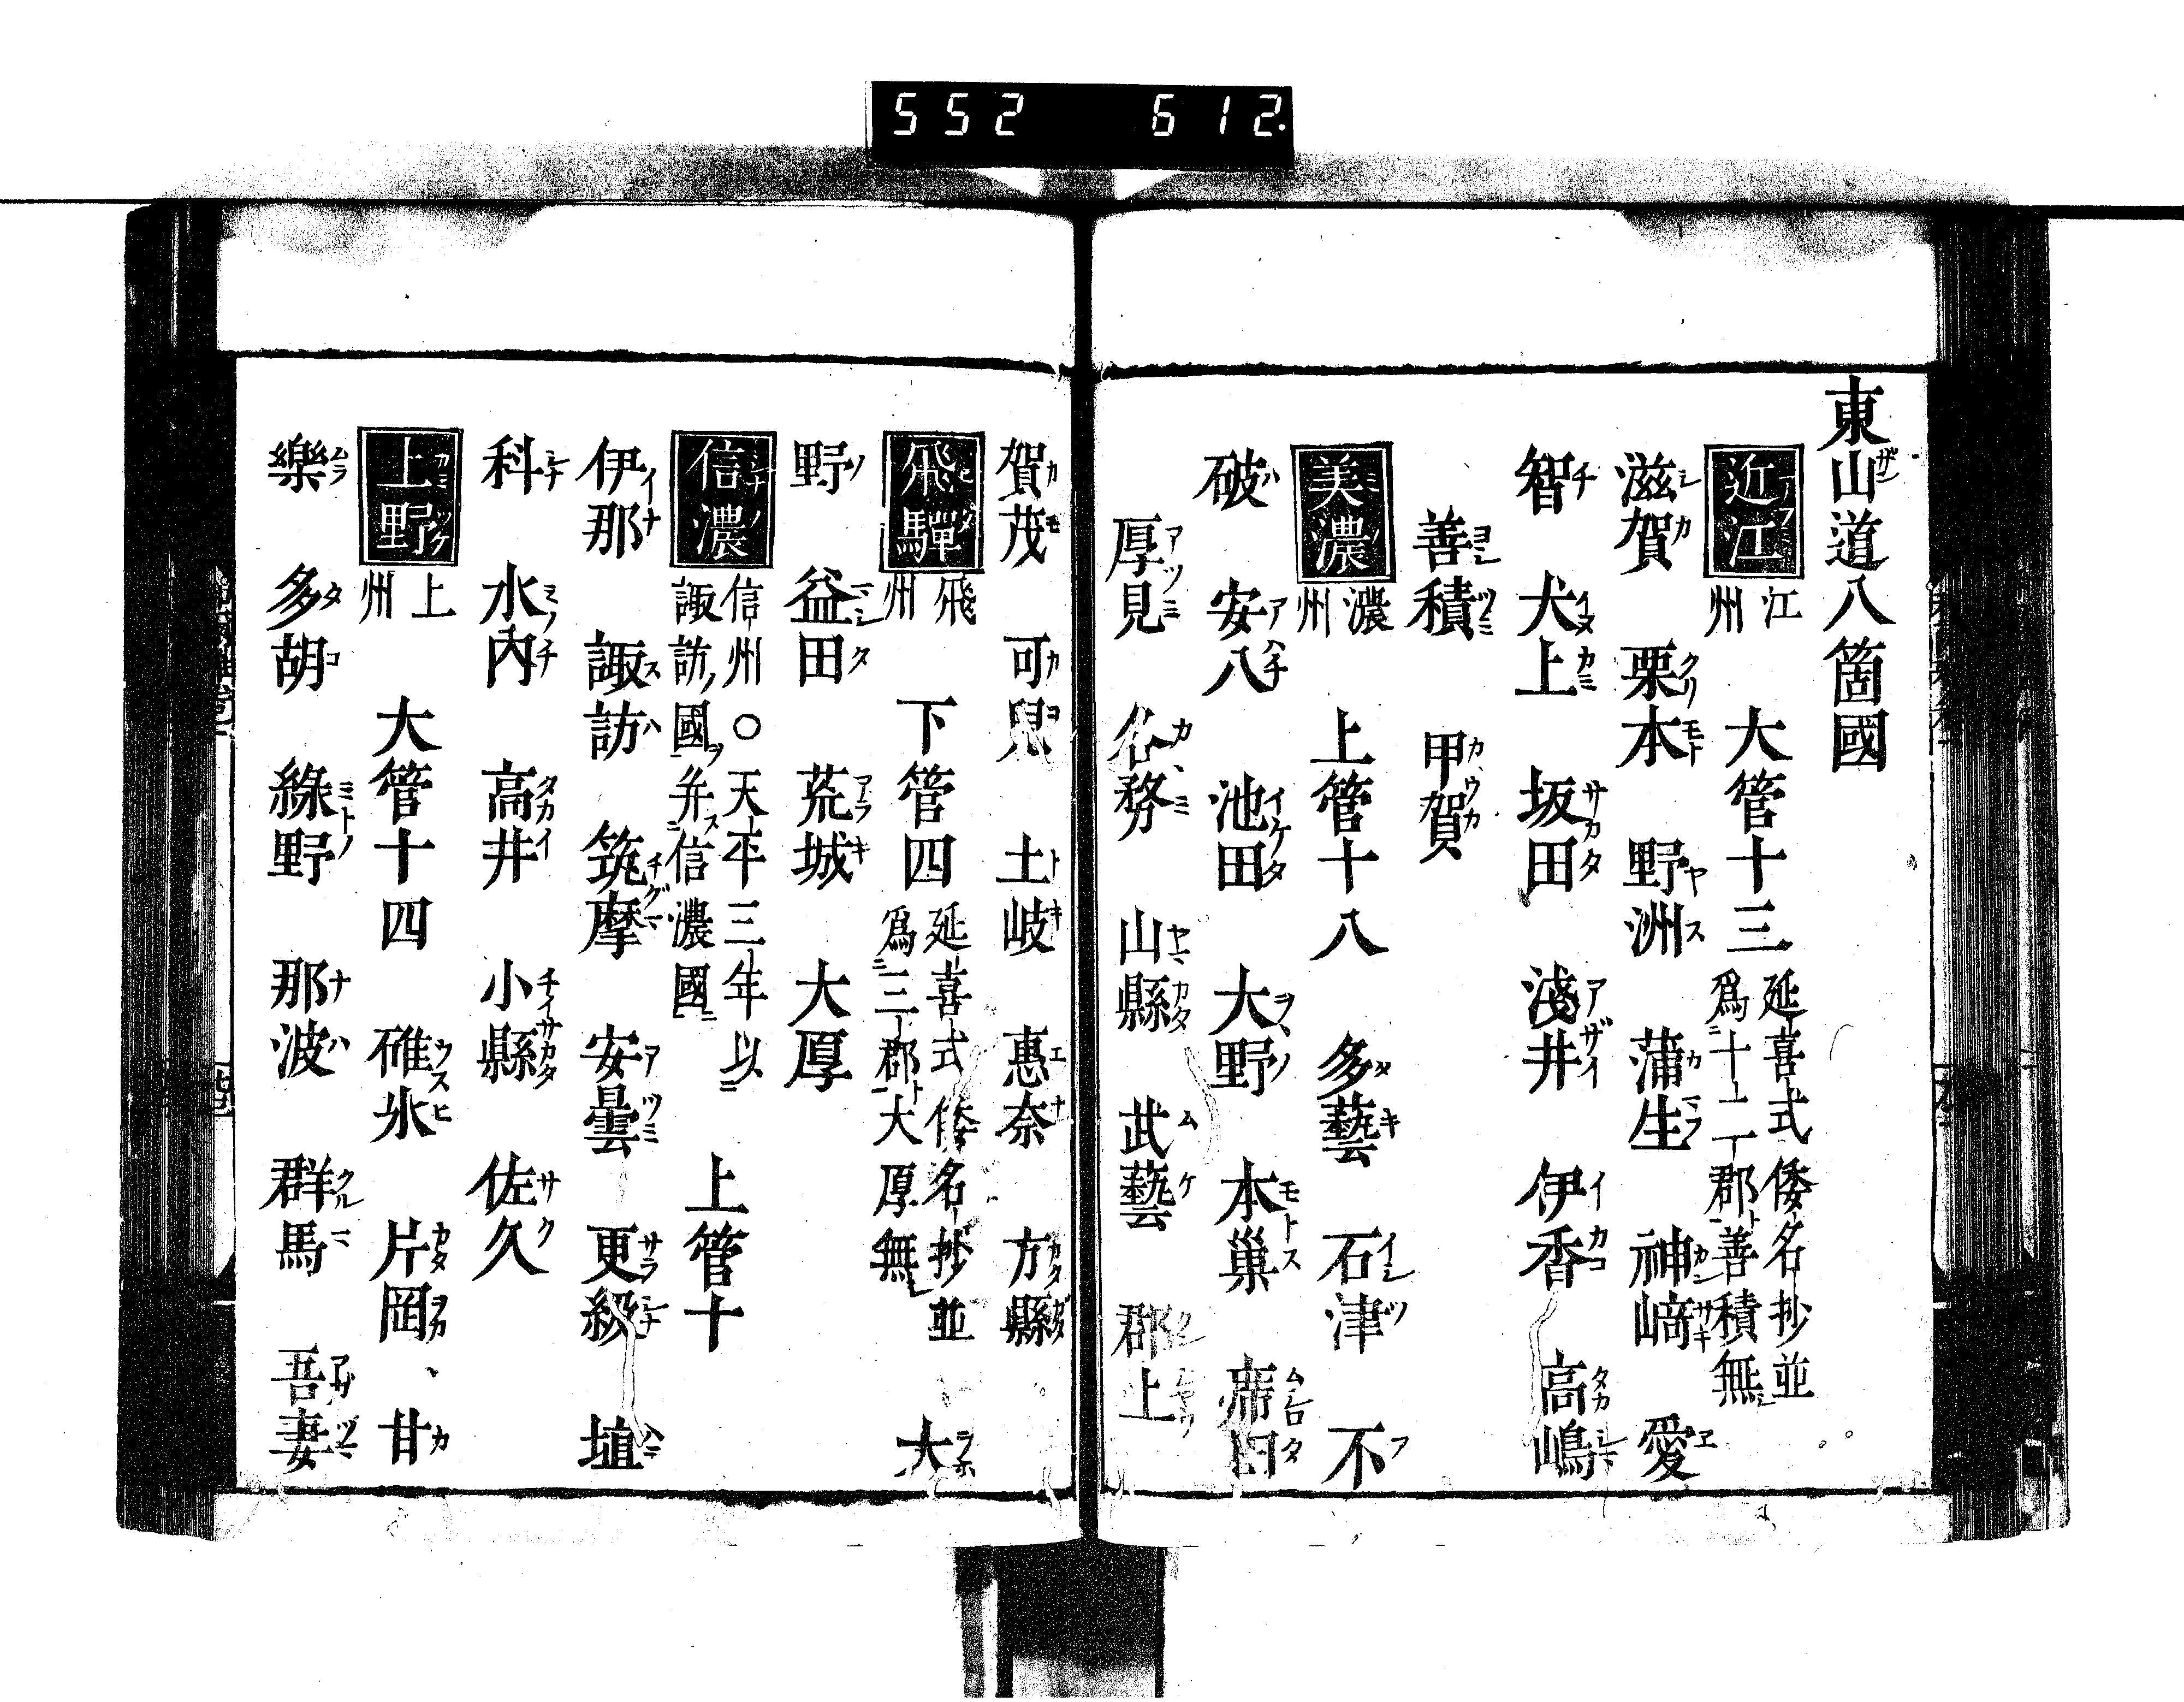 552 612
東山道八箇國
近江 江州 大管十三 延喜式倭名抄並爲十二郡善積無
滋賀 栗本 野洲 蒲生 神﨑 愛
智 犬上 坂田 淺井 伊香 高嶋
善積 甲賀
美濃 濃州 上管十八 多藝 石津 不
破 安八 池田 大野 本巢 席田
厚見 各務 山縣 武藝 郡上
賀茂 可兒 土岐 惠奈 方縣
飛驒 飛州 下管四 延喜式倭名抄並爲三郡大厚無 大
野 益田 荒城 大厚
信濃 信州○天平三年以諏訪國弁信濃國 上管十
伊那 諏訪 筑摩 安曇 更級 埴
科 水內 高井 小縣 佐久
上野 上州 大管十四 碓氷 片岡、甘
樂 多胡 綠野 那波 群馬 吾妻